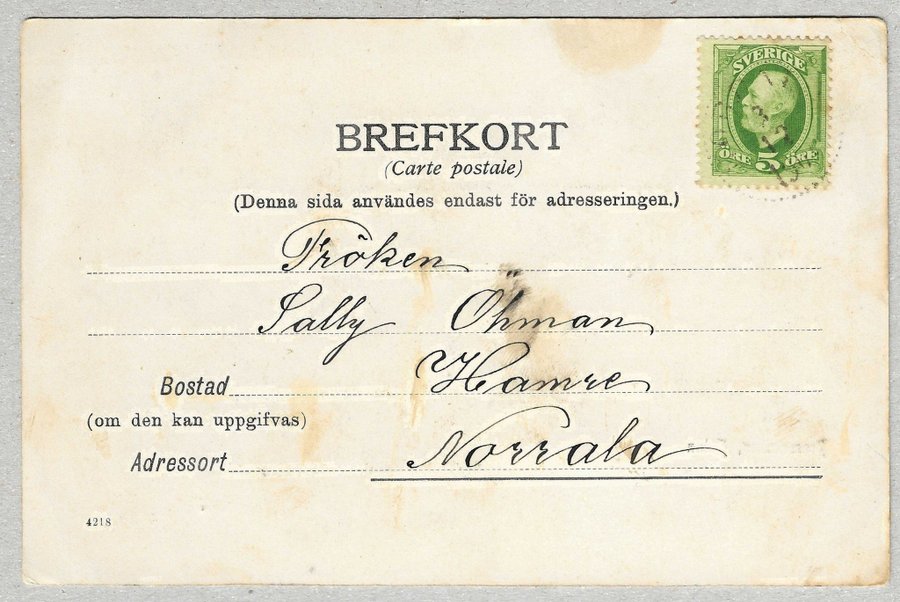 SVERIGE
ÖRE 5 ÖRE
BREFKORT
(Carte postale)
(Denna sida användes endast för adresseringen.)
Fröken
Sally Öhman
Bostad Hamre
(om den kan uppgifvas)
Adressort Norrala
4218